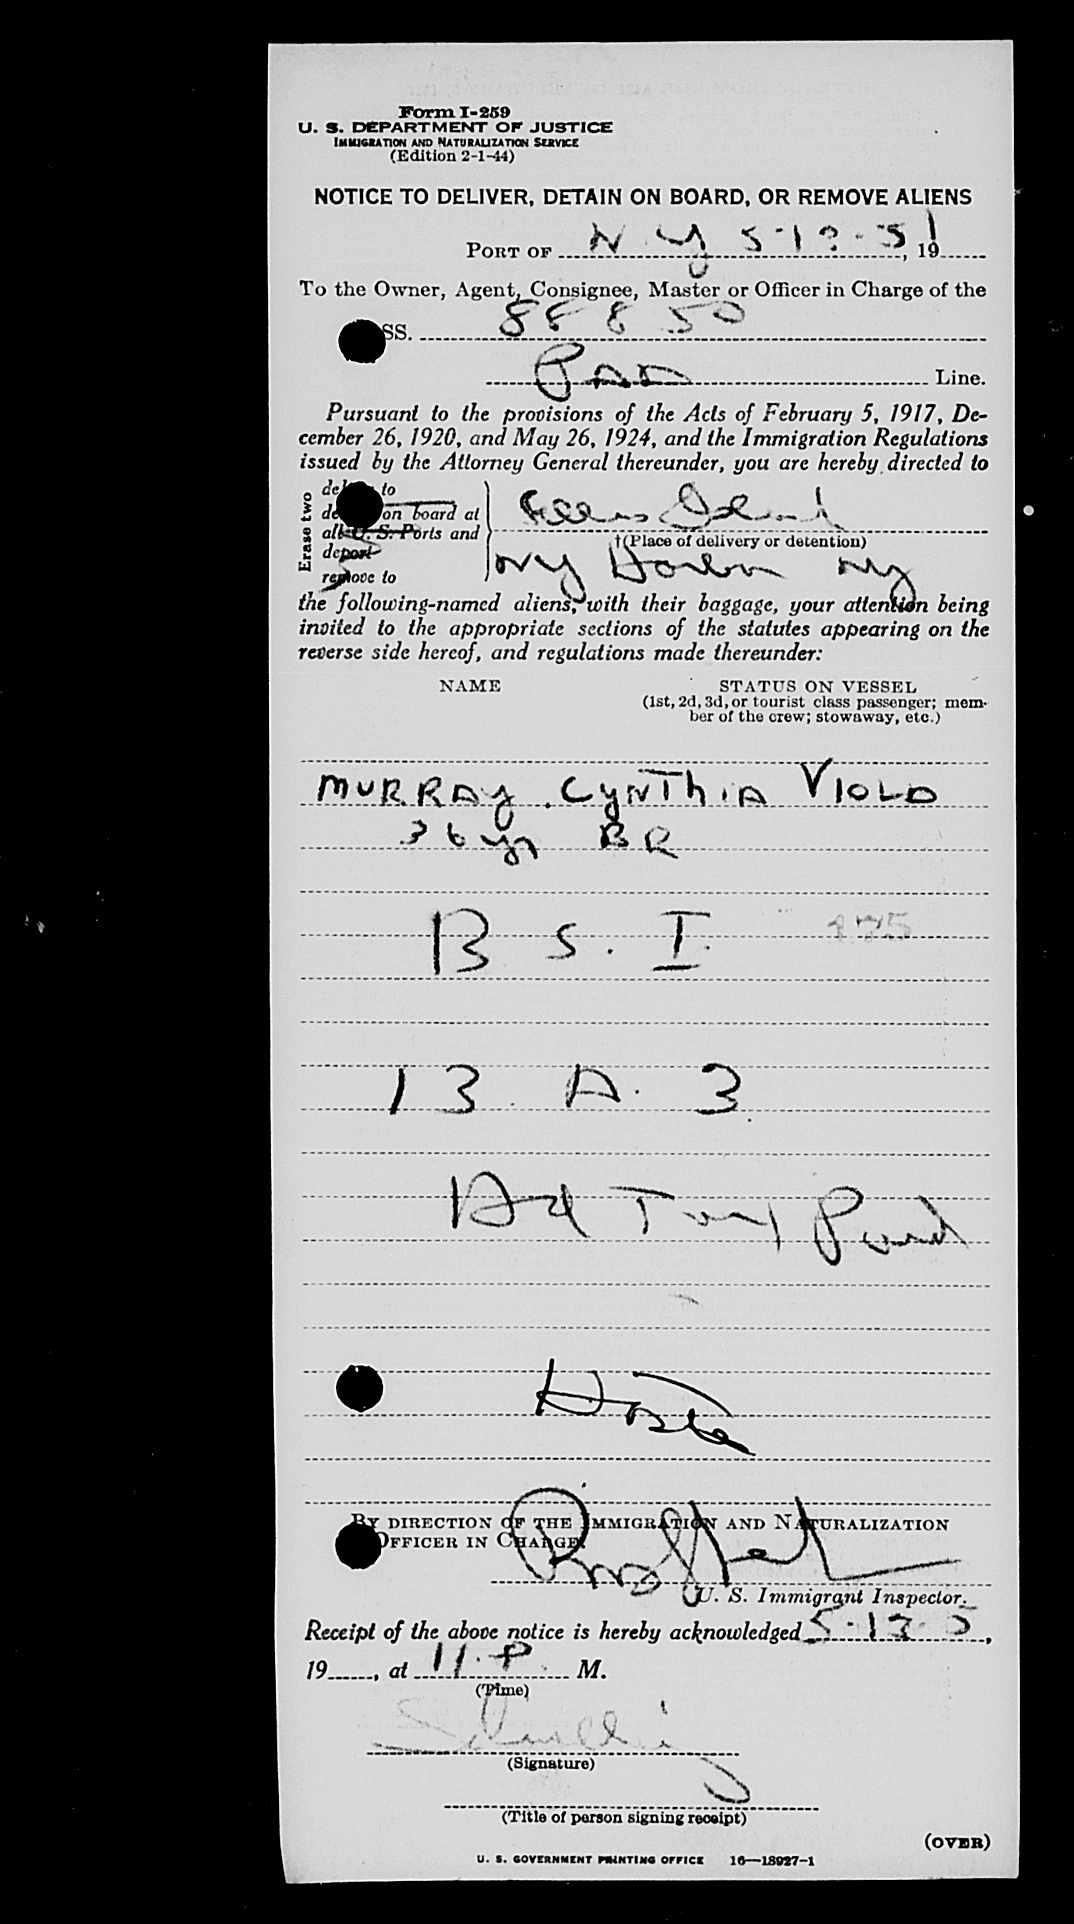 Form I-259
U. S. DEPARTMENT OF JUSTICE
IMMIGRATION AND NATURALIZATION SERVICE
(Edition 2-1-44)
NOTICE TO DELIVER, DETAIN ON BOARD, OR REMOVE ALIENS
PORT OF N.Y 5-13-51, 19
To the Owner, Agent, Consignee, Master or Officer in Charge of the
SS. 88850
PAA Line.
Pursuant to the provisions of the Acts of February 5, 1917, De-
cember 26, 1920, and May 26, 1924, and the Immigration Regulations
issued by the Attorney General thereunder, you are hereby directed to
Erase two
to
on board at
all U. S. Ports and
deport
remove to
Ellis Island
†(Place of delivery or detention)
NY Harbor NY
the following-named aliens, with their baggage, your attention being
invited to the appropriate sections of the statutes appearing on the
reverse side hereof, and regulations made thereunder:
NAME STATUS ON VESSEL
(1st, 2d, 3d, or tourist class passenger; mem-
ber of the crew; stowaway, etc.)
MURRAY. CYNTHIA VIOLA
36 yr BR
B S. I.
175
13 A. 3.
BY DIRECTION OF THE IMMIGRATION AND NATURALIZATION
OFFICER IN CHARGE.
U. S. Immigrant Inspector.
Receipt of the above notice is hereby acknowledged 5-13-5,
19, at 11. P. M.
(Time)
(Signature)
(Title of person signing receipt)
(OVER)
U. S. GOVERNMENT PRINTING OFFICE 16—18927-1